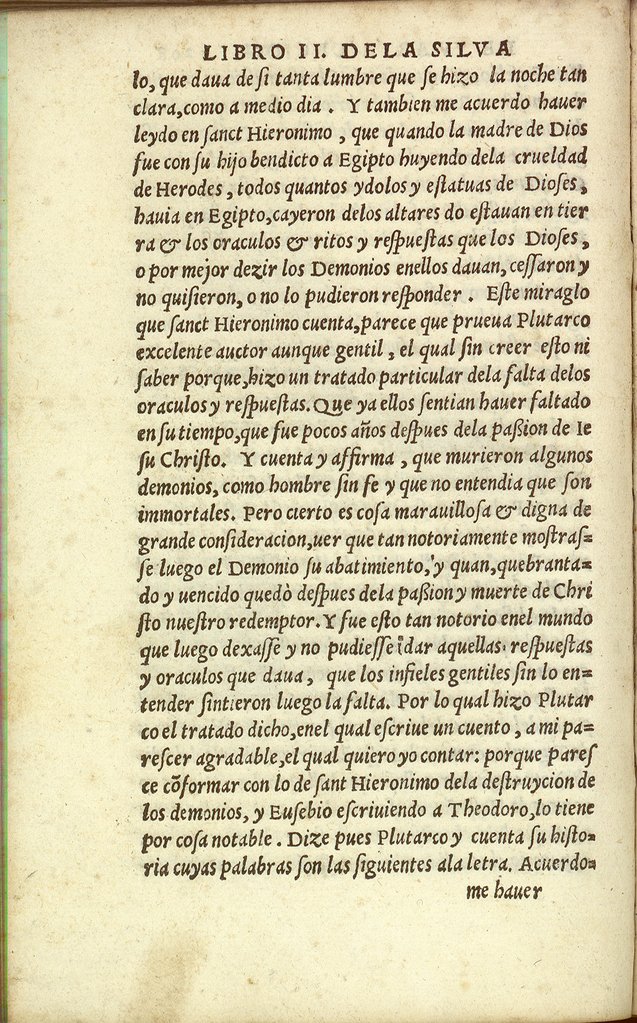 LIBRO II. DE LA SILVA
lo, que daua de ſi tanta lumbre que ſe hizo la noche tan
clara, como a medio dia. Y tambien me acuerdo hauer
leydo en ſanct Hieronimo, que quando la madre de Dios
fue con ſu hijo bendicto a Egipto huyendo dela crueldad
de Herodes, todos quantos ydolos y eſtatuas de Dioſes,
hauia en Egipto, cayeron delos altares do eſtauan en tier
ra & los oraculos & ritos y reſpueſtas que los Dioſes,
o por mejor dezir los Demonios enellos dauan, ceſſaron y
no quiſieron, o no lo pudieron reſponder. Eſte miraglo
que ſanct Hieronimo cuenta, parece que prueua Plutarco
excelente auctor aunque gentil, el qual ſin creer eſto ni
ſaber porque, hizo un tratado particular dela falta delos
oraculos y reſpueſtas. Que ya ellos ſentian hauer faltado
en ſu tiempo, que fue pocos años deſpues dela paßion de Ie
ſu Chriſto. Y cuenta y affirma, que murieron algunos
demonios, como hombre ſin fe y que no entendia que ſon
immortales. Pero cierto es coſa marauilloſa & digna de
grande conſideracion, uer que tan notoriamente moſtraſ=
ſe luego el Demonio ſu abatimiento, y quan, quebranta=
do y uencido quedò deſpues dela paßion y muerte de Chri
ſto nueſtro redemptor. Y fue eſto tan notorio enel mundo
que luego dexaſſe y no pudieſſe dar aquellas reſpueſtas
y oraculos que daua, que los infieles gentiles ſin lo en=
tender ſintieron luego la falta. Por lo qual hizo Plutar
co el tratado dicho, enel qual eſcriue un cuento, a mi pa=
reſcer agradable, el qual quiero yo contar: porque pareſ
ce cõformar con lo de ſant Hieronimo dela deſtruycion de
los demonios, y Euſebio eſcriuiendo a Theodoro, lo tiene
por coſa notable. Dize pues Plutarco y cuenta ſu hiſto=
ria cuyas palabras ſon las ſiguientes ala letra. Acuerdo=
me hauer